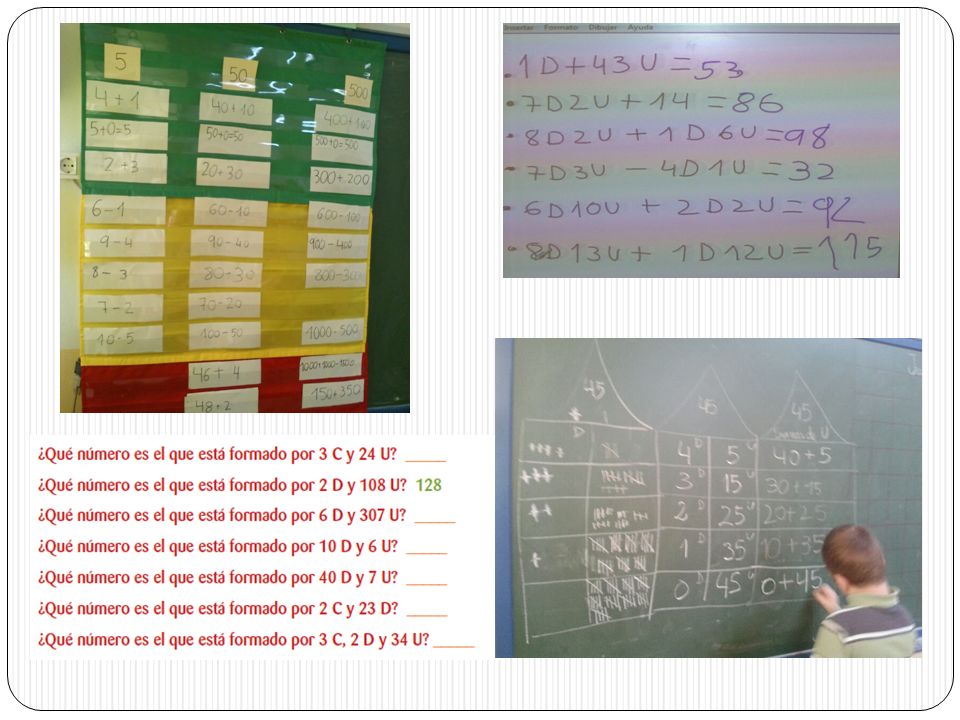 5
50
500
4+1
40+10
400+100
5+0=5
50+0=50
500+0=500
2+3
20+30
300+200
6-1
60-10
600-100
9-4
90-40
900-400
8-3
80-30
800-300
7-2
70-20
10-5
100-50
1000-500
46+4
48+2
150+350
Insertar Formato Dibujar Ayuda
• 1D+43U=53
• 7D2U+14=86
• 8D2U+1D6U=98
• 7D3U-4D1U=32
• 6D10U+2D2U=92
• 8D13U+1D12U=115
¿Qué número es el que está formado por 3 C y 24 U? _____
¿Qué número es el que está formado por 2 D y 108 U? 128
¿Qué número es el que está formado por 6 D y 307 U? _____
¿Qué número es el que está formado por 10 D y 6 U? _____
¿Qué número es el que está formado por 40 D y 7 U? _____
¿Qué número es el que está formado por 2 C y 23 D? _____
¿Qué número es el que está formado por 3 C, 2 D y 34 U? _____
45 45 45
D U
4D 5U 40+5
3D 15U 30+15
2D 25U 20+25
1D 35U 10+35
0D 45U 0+45